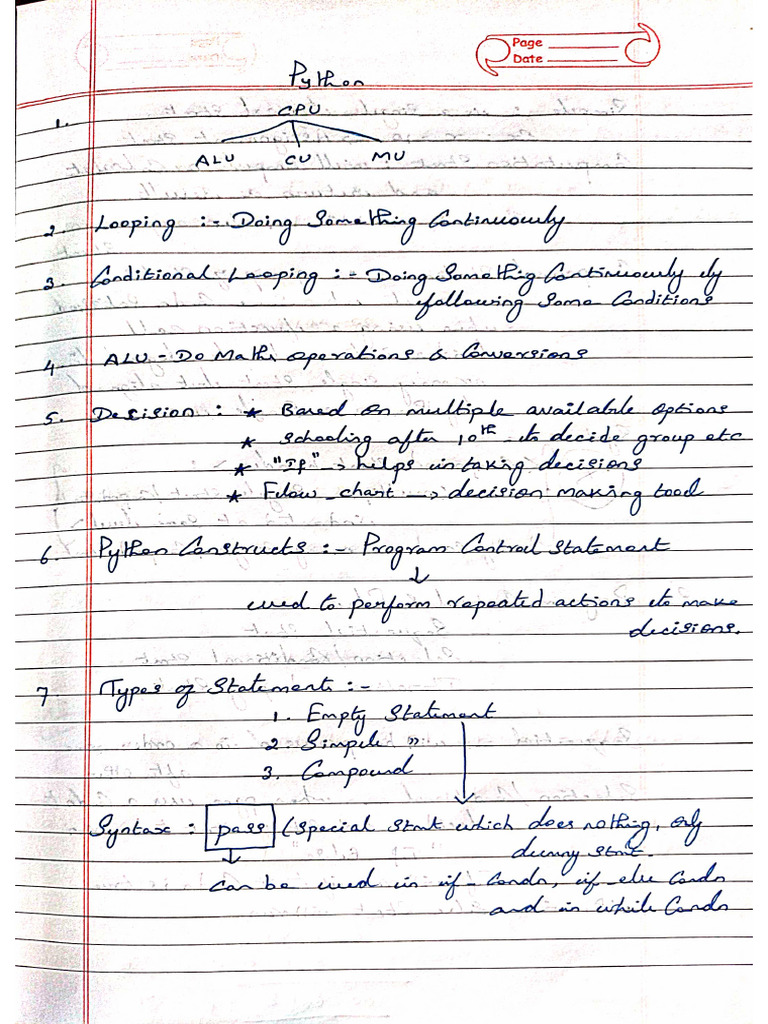 Page
Date
Python
1. CPU
ALU CU MU
2. Looping :- Doing Something Continuously
3. Conditional Looping :- Doing Somethig Continuously by
following Some Conditions
4. ALU - Do Maths operations & Conversions
5. Decision : * Based on multiple available options
* Schooling after 10th to decide group etc
* "IF" → helps in taking decisions
* Flow_chart → decision making tool
6. Python Constructs :- Program Control Statement
↓
used to perform repeated actions to make
decisions.
7. Types of Statements :-
1. Empty Statement
2. Simple "
3. Compound
Syntax : pass (special stmt which does nothing, only
dummy stmt.
can be used in if-Condn, if-else Condn
and in while Condn